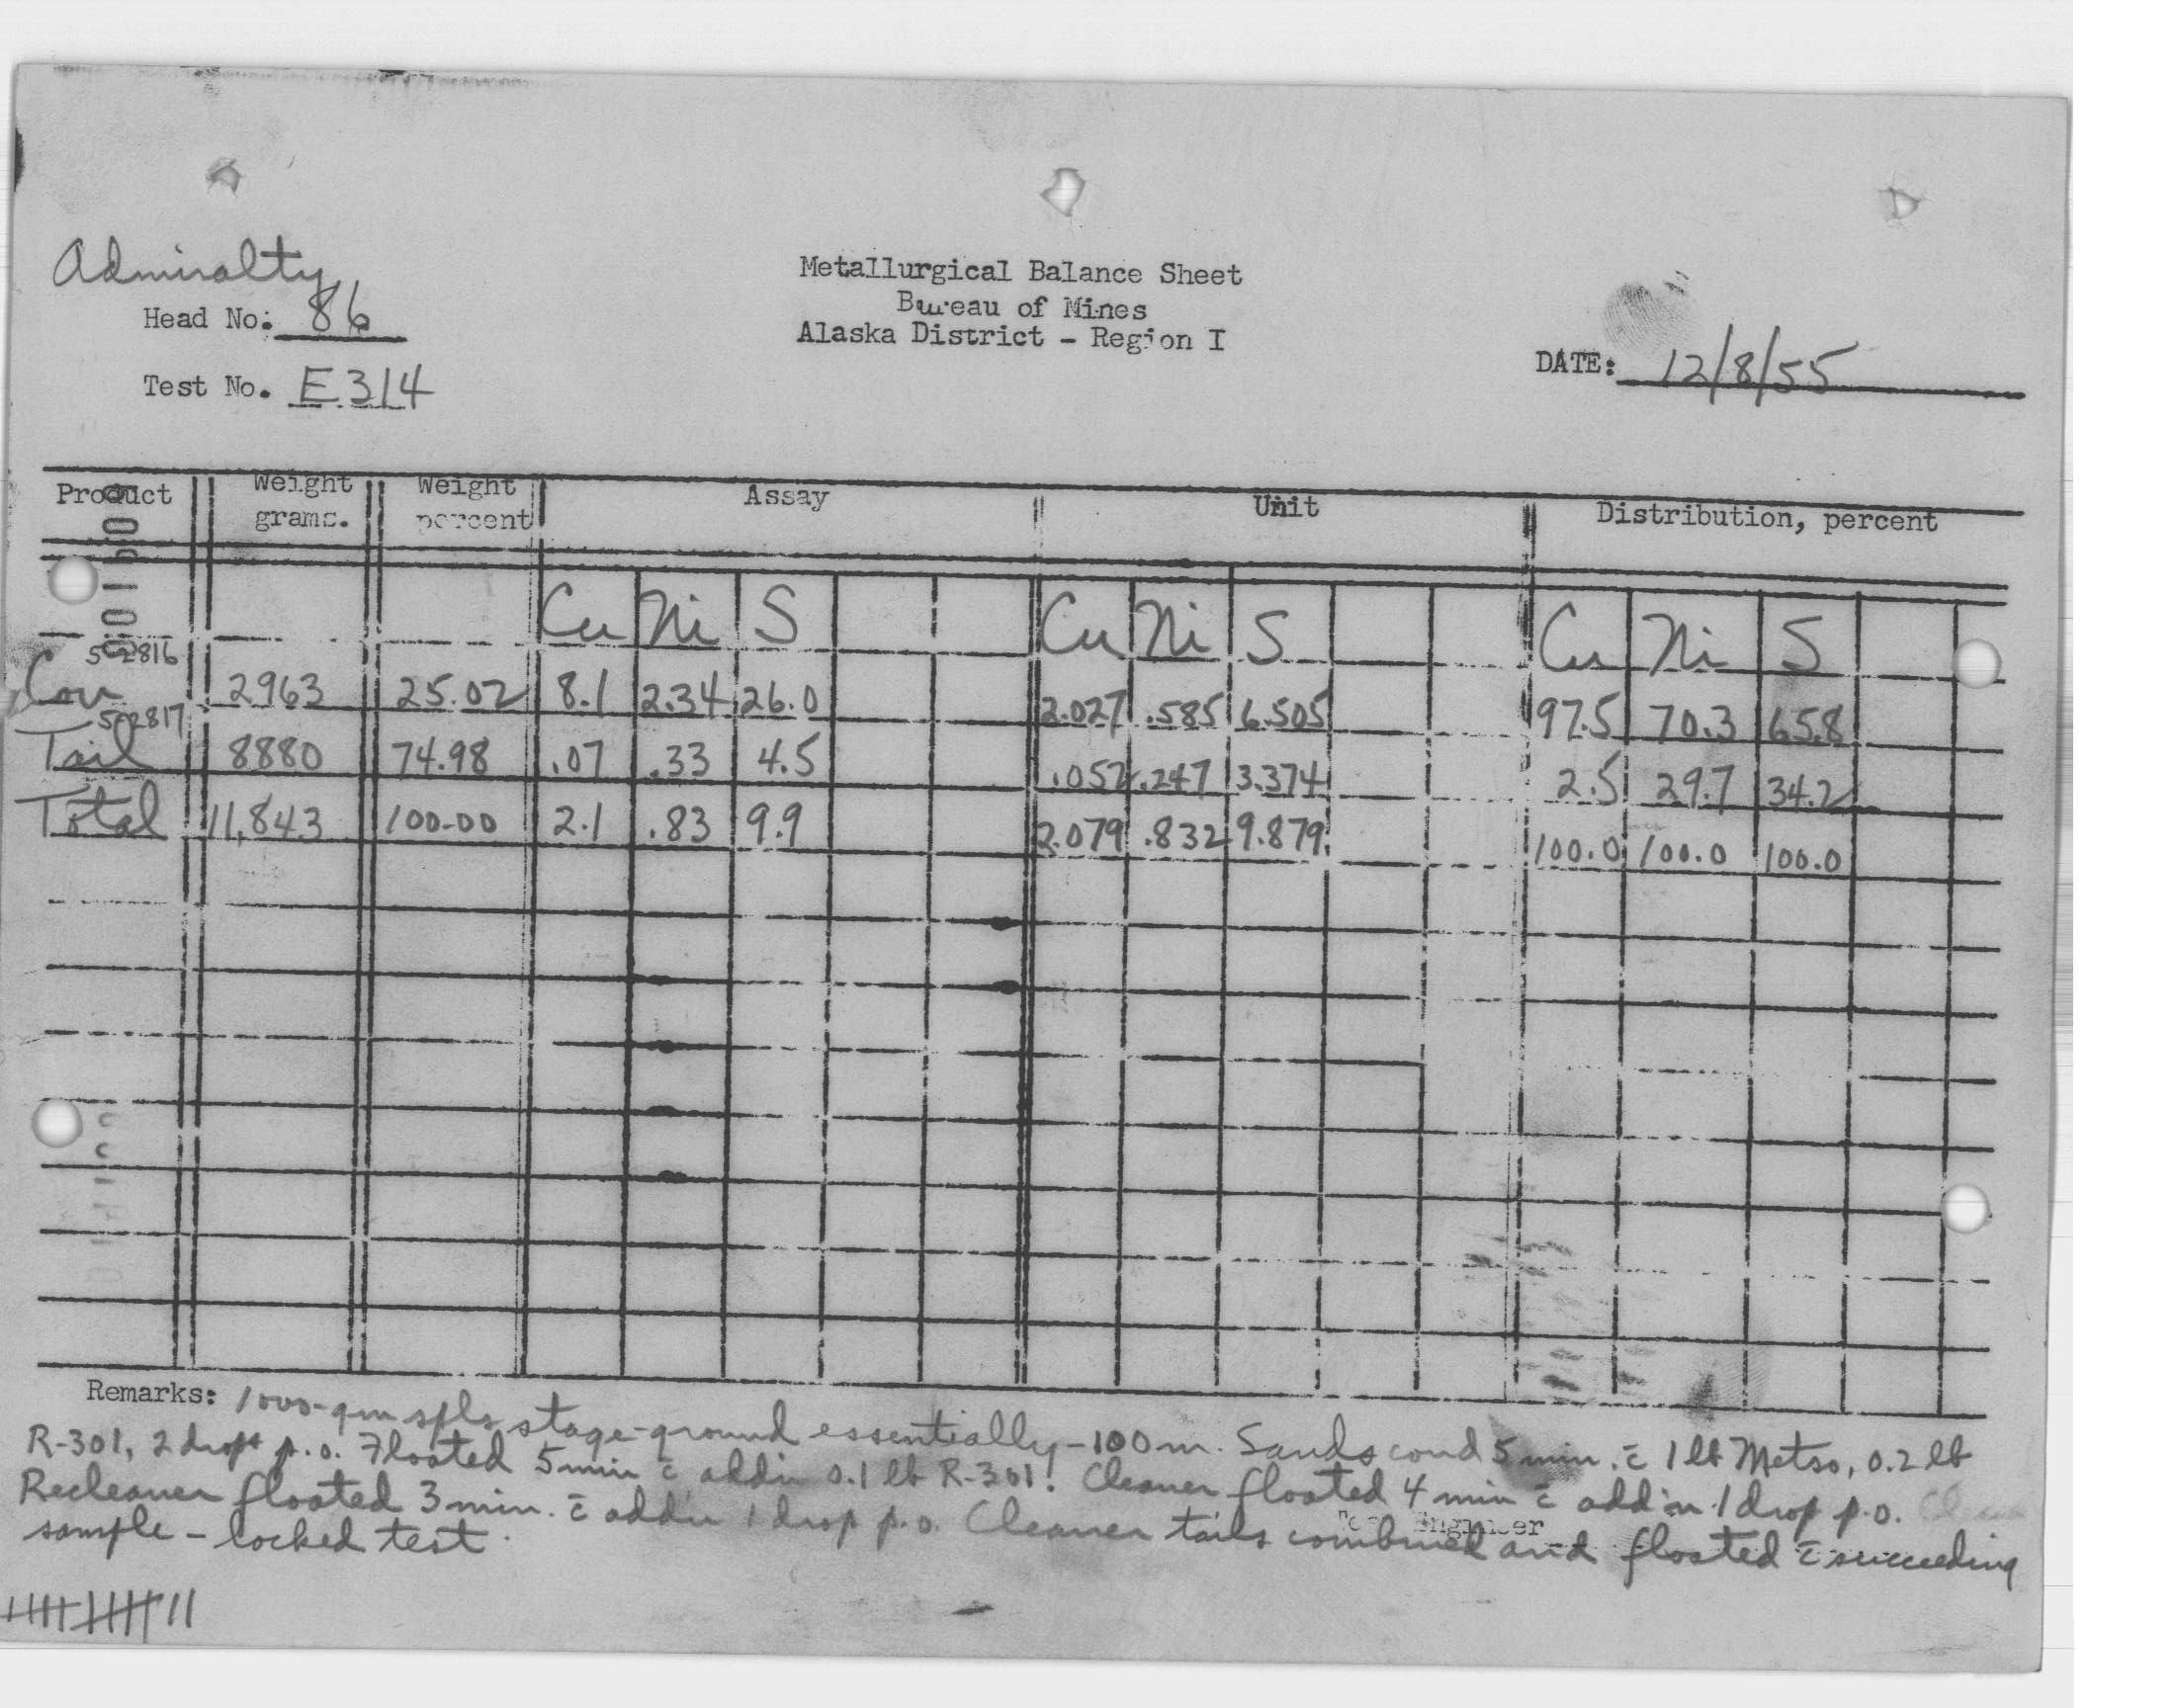 Admiralty
Metallurgical Balance Sheet
Head No: 86
Bureau of Mines
Alaska District - Region I
DATE: 12/8/55
Test No. E314
Product Weight grams. Weight percent Assay Unit Distribution, percent
Cu Ni S Cu Ni S Cu Ni S
502816
Con 2963 25.02 8.1 2.34 26.0 2.027 .585 6.505 97.5 70.3 65.8
502817
Tail 8880 74.98 .07 .33 4.5 .052 .247 3.374 2.5 29.7 34.2
Total 11,843 100.00 2.1 .83 9.9 2.079 .832 9.879 100.0 100.0 100.0
Remarks: 1000-gm spls stage-ground essentially -100 m. Sands cond 5 min. c̄ 1 lb Metso, 0.2 lb
R-301, 2 drops p.o. Floated 5 min c̄ addn 0.1 lb R-301. Cleaner floated 4 min c̄ add'n 1 drop p.o.
Recleaner floated 3 min. c̄ addn 1 drop p.o. Cleaner tails combined and floated c̄ succeeding
Engineer
sample - locked test.